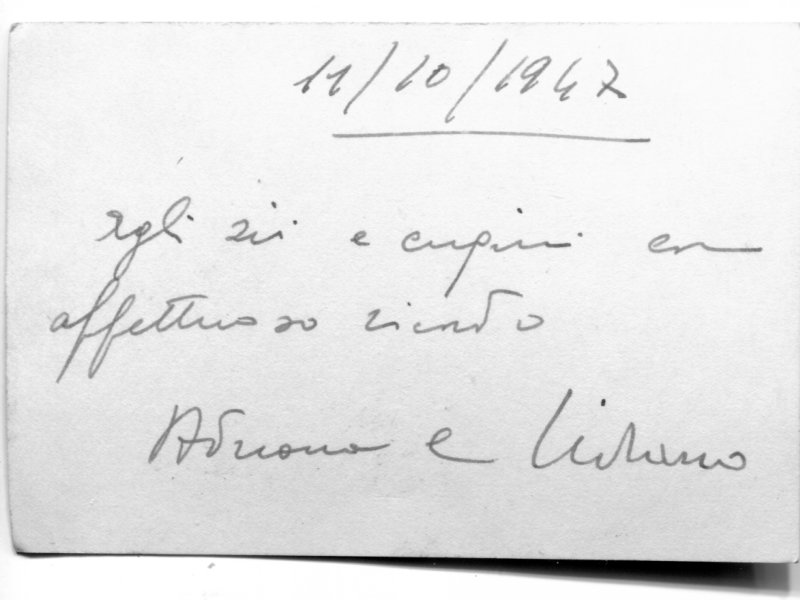 11/10/1947
Agli zii e cugini con
affettuoso ricordo
Adriana e